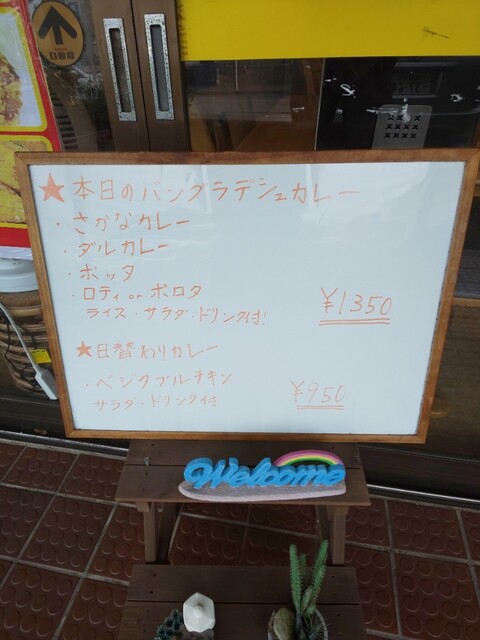 ★本日のバングラデシュカレー
・さかなカレー
・ダルカレー
・ボッタ
・ロティ or ポロタ
ライス・サラダ・ドリンク付!
¥1350
★日替わりカレー
・ベジタブルチキン
サラダ・ドリンク付
¥950
Welcome